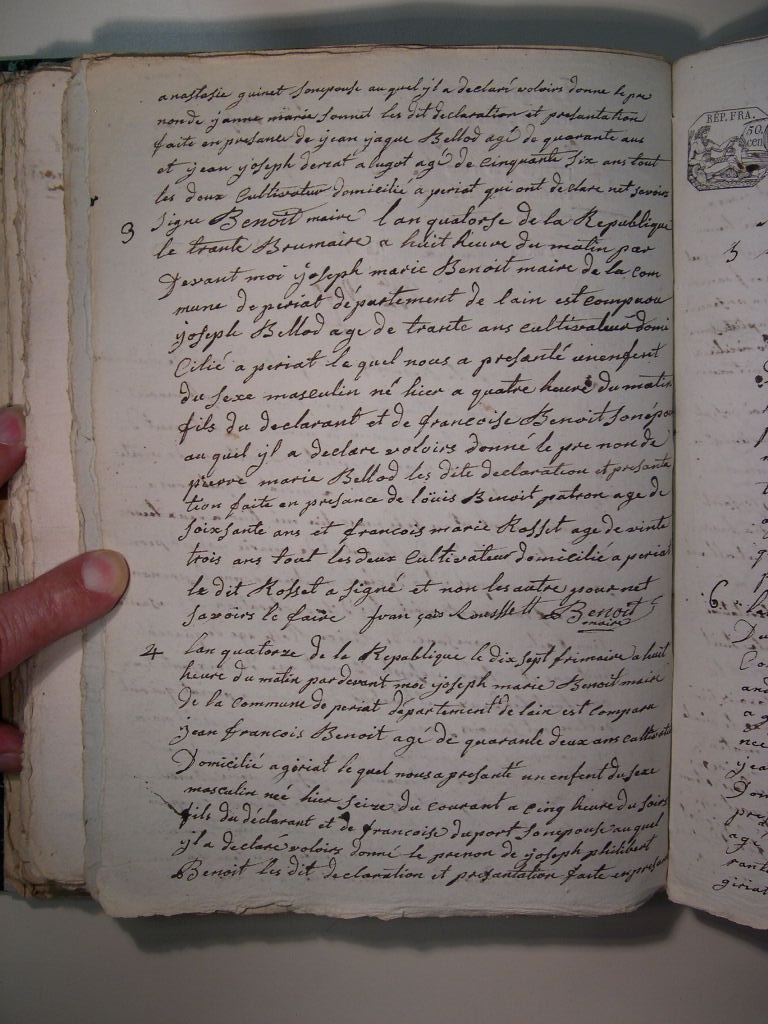 anastasie guinet son epouse auquel yl a declaré voloirs donne le pre
non de jeanne marie Sonnet les dit declaration et presantation
faite en presance de jean jaque Bellod agé de quarante ans
et jean joseph alugot agé de Cinquante Six ans tout
les deux Cultivateur domicilié a periat qui ont declare net savoirs
signe Benoit maire
3 lan quatorse de la Republique
le trante Brumaire a huit heure du matin par
Devant moi joseph marie Benoit maire de la Com
mune de periat département de lain est comparu
joseph Bellod age de trante ans cultivateur domi
Cilié a periat le quel nous a presanté un enfent
du sexe masculin né hier a quatre heure du matin
fils du declarant et de francoise Benoit son épou
au quel yl a declare voloirs donné le pre non de
pierre marie Bellod les dite declaration et presanta
tion faite en presance de löuis Benoit patron age de
soixsante ans et francois marie Rosset age de vinte
trois ans tout les deux Cultivateur domicilié a periat
le dit Rosset a signé et non les autre pour net
savoirs le faire françois Roussett Benoit
maire
4 lan quatorze de la Republique le dix sept frimaire a huit
heure du matin par devant moi joseph marie Benoit maire
de la Commune de periat département de lain est compara
jean francois Benoit agé de quarante deux ans cultivate
Domicilié a giriat le quel nous a presanté un enfent du sexe
masculin neé hier seize du courant a cinq heure du soirs
fils du déclarant et de francoise duport son epouse auquel
yl a declaré voloirs donné le prenon de joseph philibert
Benoit les dit declaration et presantation faite en presan
RÉP. FRA.
50
cen
5
6